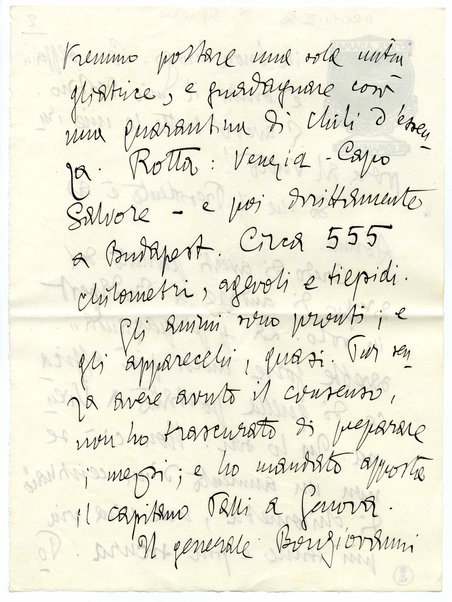 vremmo portare una sola mitra
gliatrice, e guadagnare così
una quarantina di chili d'essen
za. Rotta: Venezia - Capo
Salvore - e poi dirittamente
a Budapest. Circa 555
chilometri, agevoli e tiepidi.
Gli animi sono pronti; e
gli apparecchi, quasi. Pur sen
za avere avuto il consenso,
non ho trascurato di preparare
i mezzi; e ho mandato apposta
il capitano Palli a Genova.
Il generale Bongiovanni